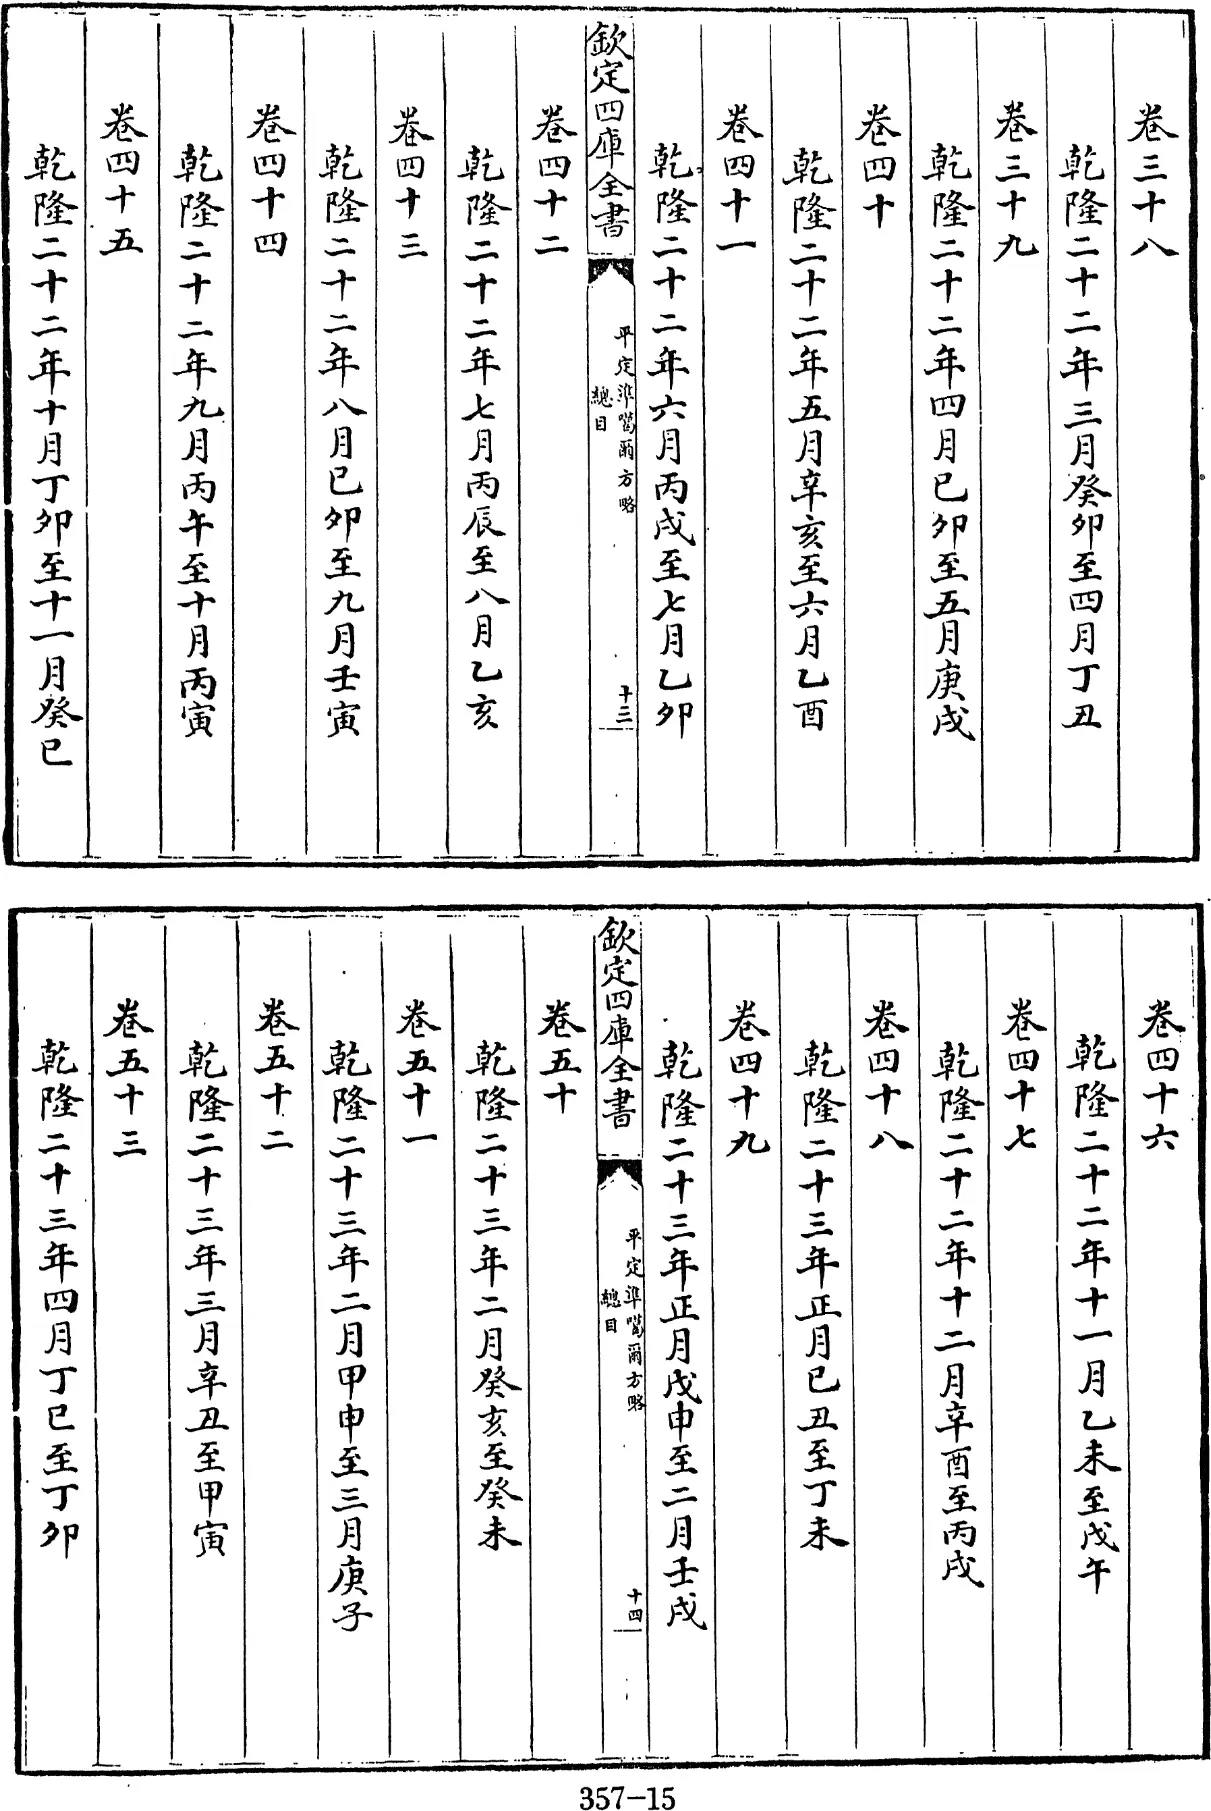 卷三十八
乾隆二十二年三月癸卯至四月丁丑
卷三十九
乾隆二十二年四月已卯至五月庚戌
卷四十
乾隆二十二年五月辛亥至六月乙酉
卷四十一
乾隆二十二年六月丙戌至七月乙卯
欽定四庫全書
平定準噶爾方略
總目
十三
卷四十二
乾隆二十二年七月丙辰至八月乙亥
卷四十三
乾隆二十二年八月已卯至九月壬寅
卷四十四
乾隆二十二年九月丙午至十月丙寅
卷四十五
乾隆二十二年十月丁卯至十一月癸巳
卷四十六
乾隆二十二年十一月乙未至戊午
卷四十七
乾隆二十二年十二月辛酉至丙戌
卷四十八
乾隆二十三年正月已丑至丁未
卷四十九
乾隆二十三年正月戊申至二月壬戌
欽定四庫全書
平定準噶爾方略
總目
十四
卷五十
乾隆二十三年二月癸亥至癸未
卷五十一
乾隆二十三年二月甲申至三月庚子
卷五十二
乾隆二十三年三月辛丑至甲寅
卷五十三
乾隆二十三年四月丁巳至丁卯
357-15